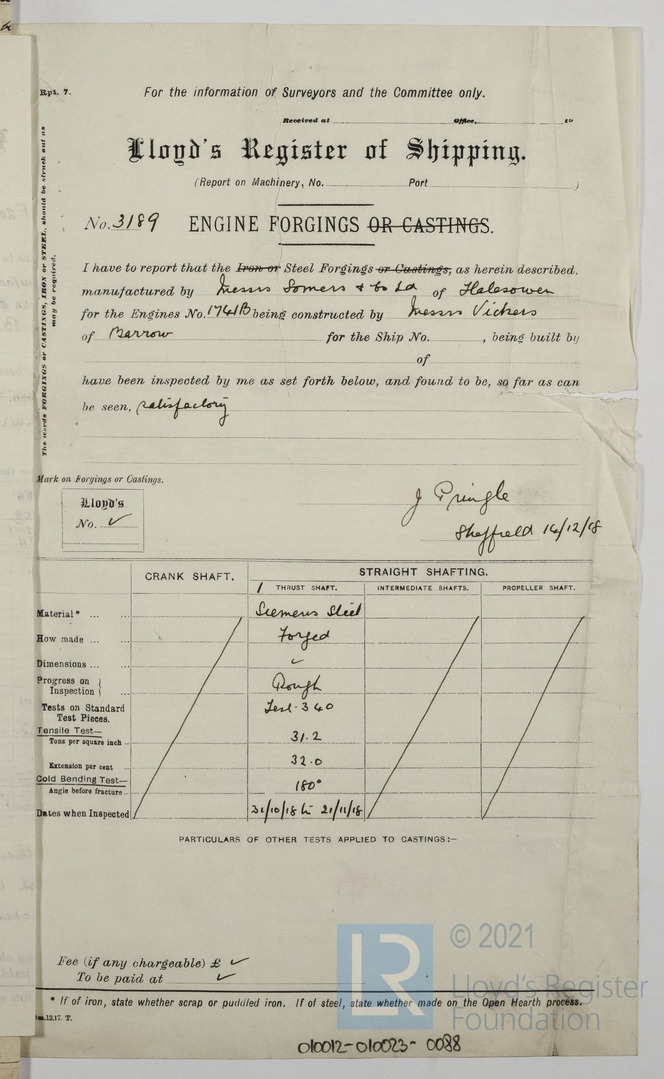 Rpt. 7.
For the information of Surveyors and the Committee only.
Received at Office, 19
Lloyd's Register of Shipping.
(Report on Machinery, No. Port )
No. 3189 ENGINE FORGINGS OR CASTINGS.
I have to report that the Iron or Steel Forgings or Castings, as herein described,
manufactured by Messrs Somers & Co Ld of Halesowen
for the Engines No. 1741B being constructed by Messrs Vickers
of Barrow for the Ship No. , being built by
of
have been inspected by me as set forth below, and found to be, so far as can
be seen, satisfactory
The words FORGINGS or CASTINGS, IRON or STEEL, should be struck out as
may be required.
Mark on Forgings or Castings.
Lloyd's
No. ✓
J Pringle
Sheffield 14/12/18
CRANK SHAFT. STRAIGHT SHAFTING.
1 THRUST SHAFT. INTERMEDIATE SHAFTS. PROPELLER SHAFT.
Material* ... ... Siemens Steel
How made ... ... Forged
Dimensions ... ... ✓
Progress on Inspection ... Rough
Tests on Standard Test Pieces. Test. 340
Tensile Test—
Tons per square inch 31.2
Extension per cent 32.0
Cold Bending Test—
Angle before fracture 180°
Dates when Inspected 31/10/18 to 21/11/18
PARTICULARS OF OTHER TESTS APPLIED TO CASTINGS:—
Fee (if any chargeable) £ ✓
To be paid at ✓
* If of iron, state whether scrap or puddled iron. If of steel, state whether made on the Open Hearth process.
12.17. T.
© 2021
LR
Lloyd's Register
Foundation
010012-010023-0088